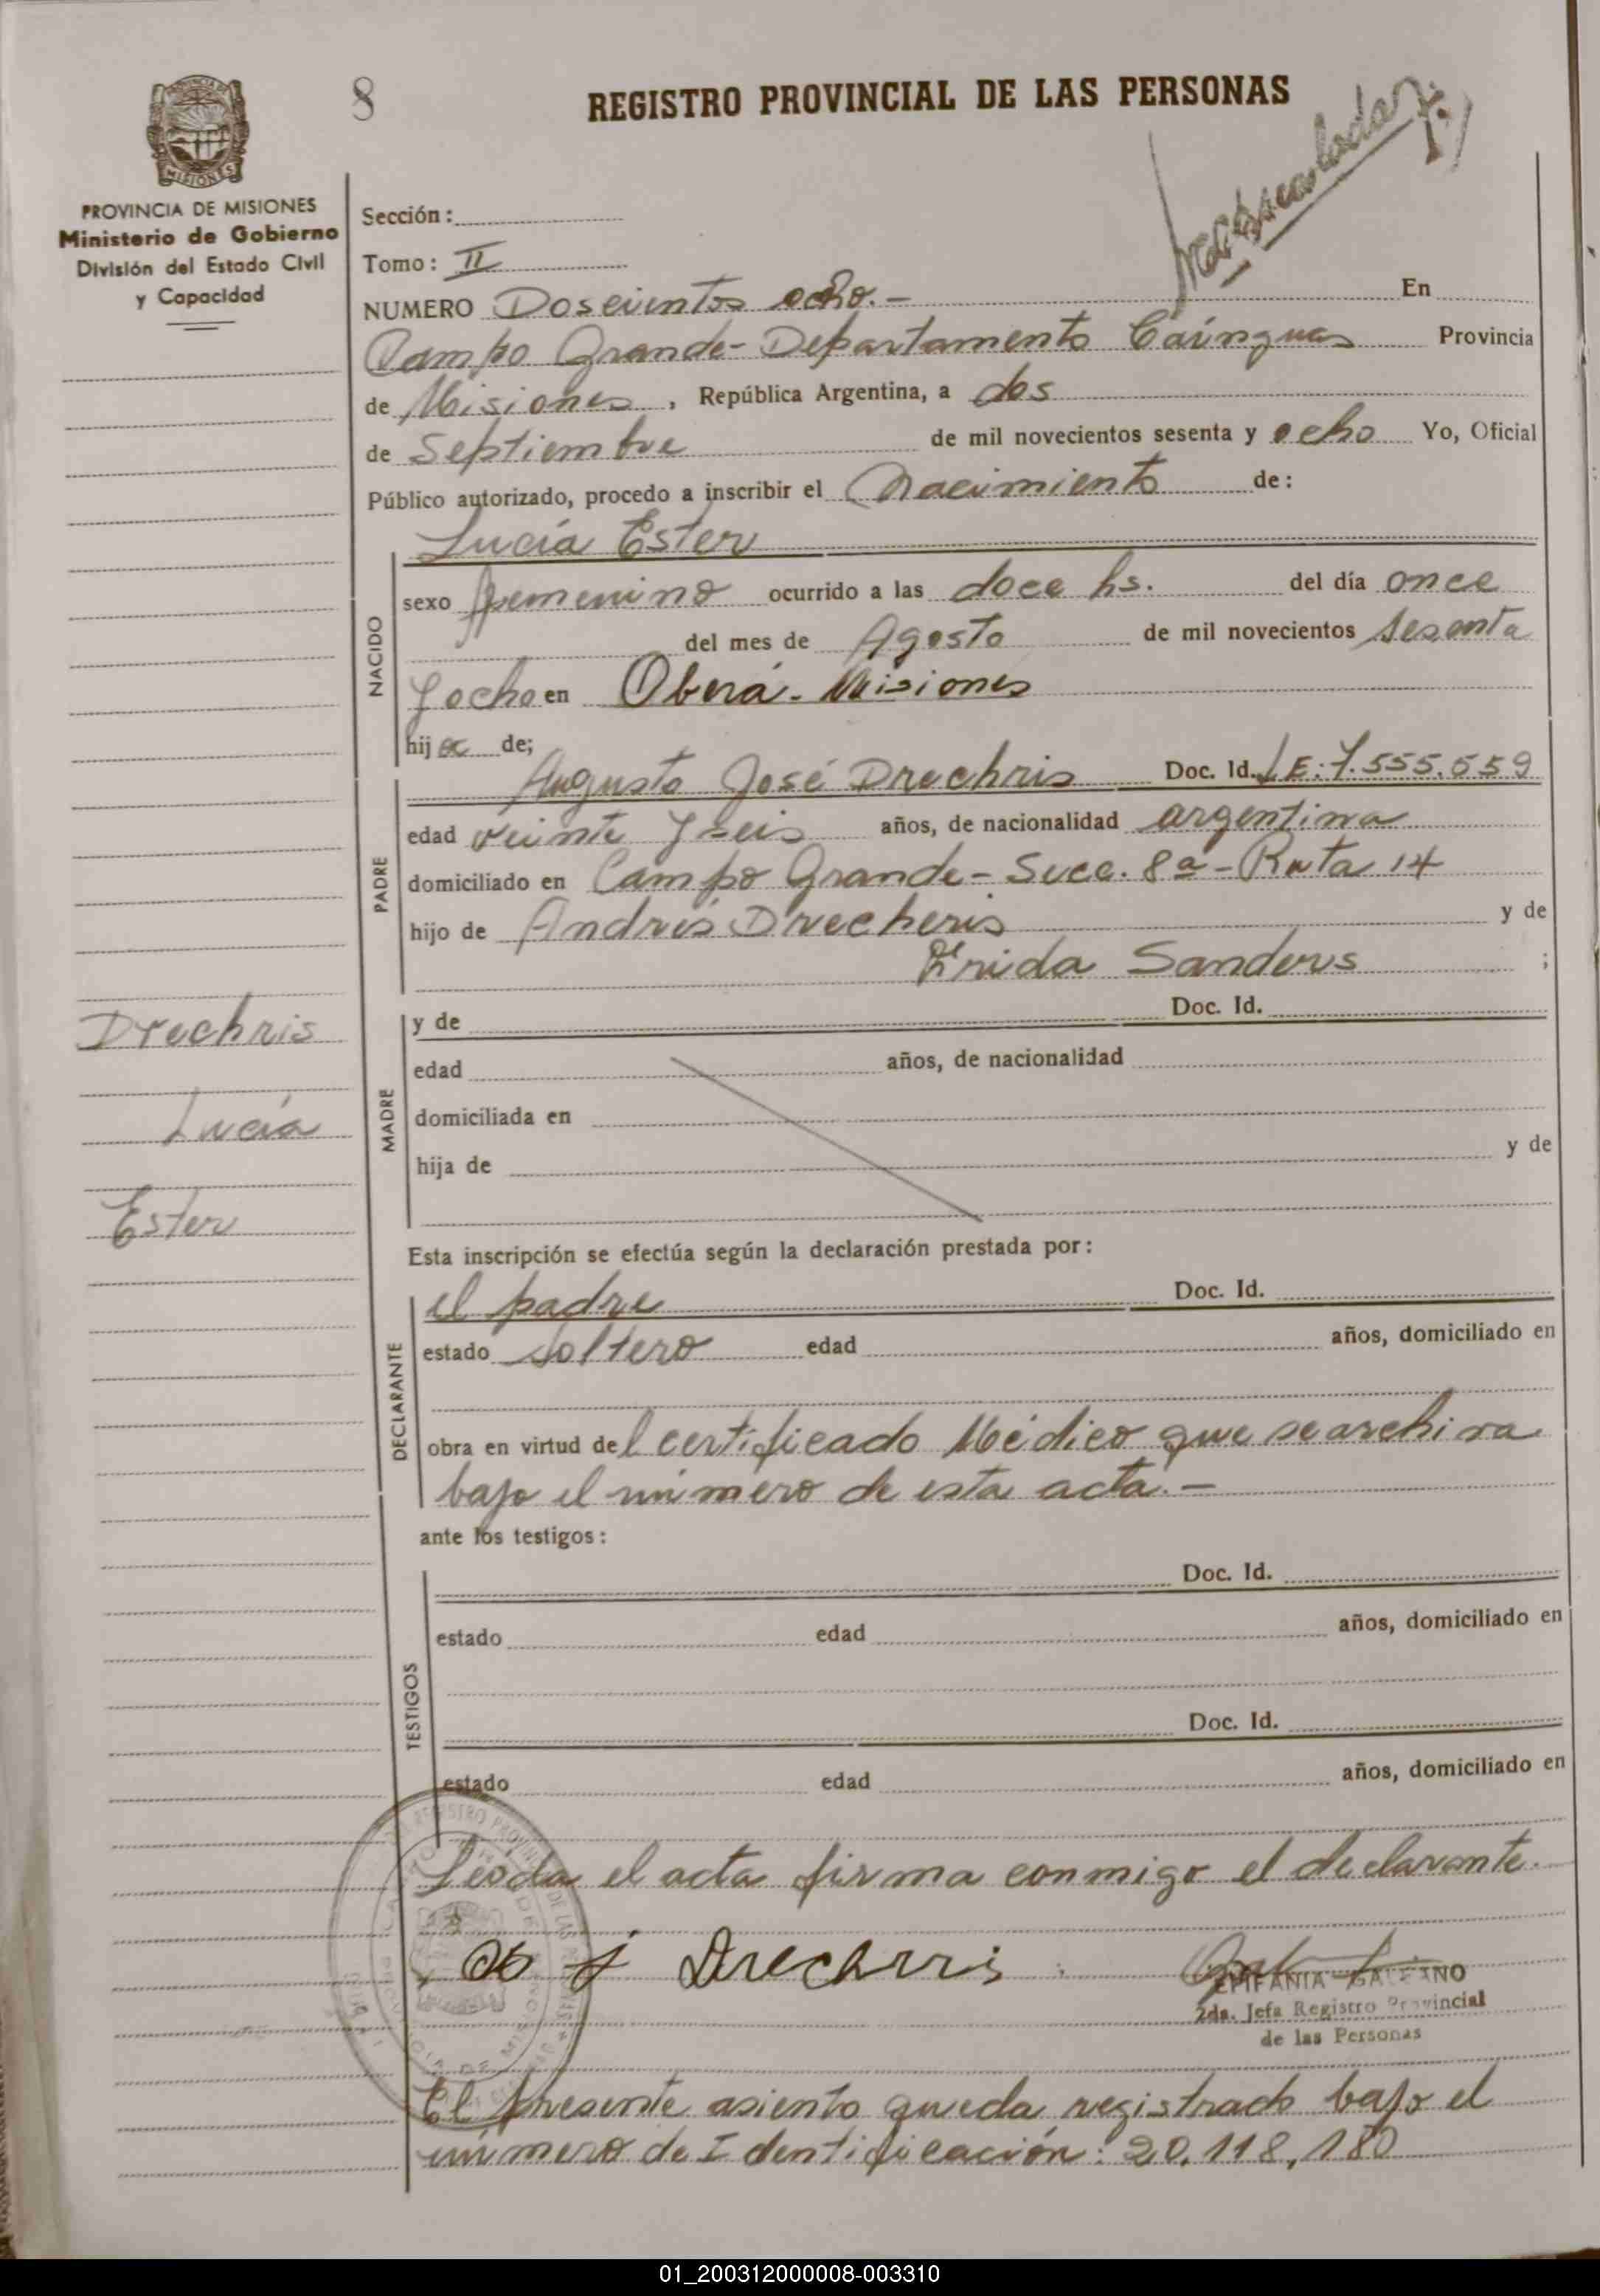 8
REGISTRO PROVINCIAL DE LAS PERSONAS
MISIONES
PROVINCIA DE MISIONES
Ministerio de Gobierno
División del Estado Civil
y Capacidad
Sección:
Tomo: II
NUMERO Doscientos ocho.- En
Campo Grande- Departamento Caínguas Provincia
de Misiones, República Argentina, a dos
de Septiembre de mil novecientos sesenta y ocho Yo, Oficial
Público autorizado, procedo a inscribir el Nacimiento de:
Lucía Ester
NACIDO
sexo femenino ocurrido a las doce hs. del día once
del mes de Agosto de mil novecientos sesenta
y ocho en Oberá. Misiones
hija de;
PADRE
Augusto José Drechris Doc. Id. L.E: 7.555.559
edad veinte y seis años, de nacionalidad argentina
domiciliado en Campo Grande- Secc. 8ª - Ruta 14
hijo de Andrés Drecheris y de
Frida Sanders ;
Drechris
Lucía
Ester
MADRE
y de Doc. Id.
edad años, de nacionalidad
domiciliada en
hija de y de
Esta inscripción se efectúa según la declaración prestada por:
DECLARANTE
el padre Doc. Id.
estado soltero edad años, domiciliado en
obra en virtud del certificado Médico que se archiva
bajo el número de esta acta.-
ante los testigos:
TESTIGOS
Doc. Id.
estado edad años, domiciliado en
Doc. Id.
estado edad años, domiciliado en
Leída el acta firma conmigo el declarante.
J Drechris
EPIFANIA GALEANO
2da. Jefa Registro Provincial
de las Personas
El presente asiento queda registrado bajo el
número de Identificación: 20.118,180
01_200312000008-003310